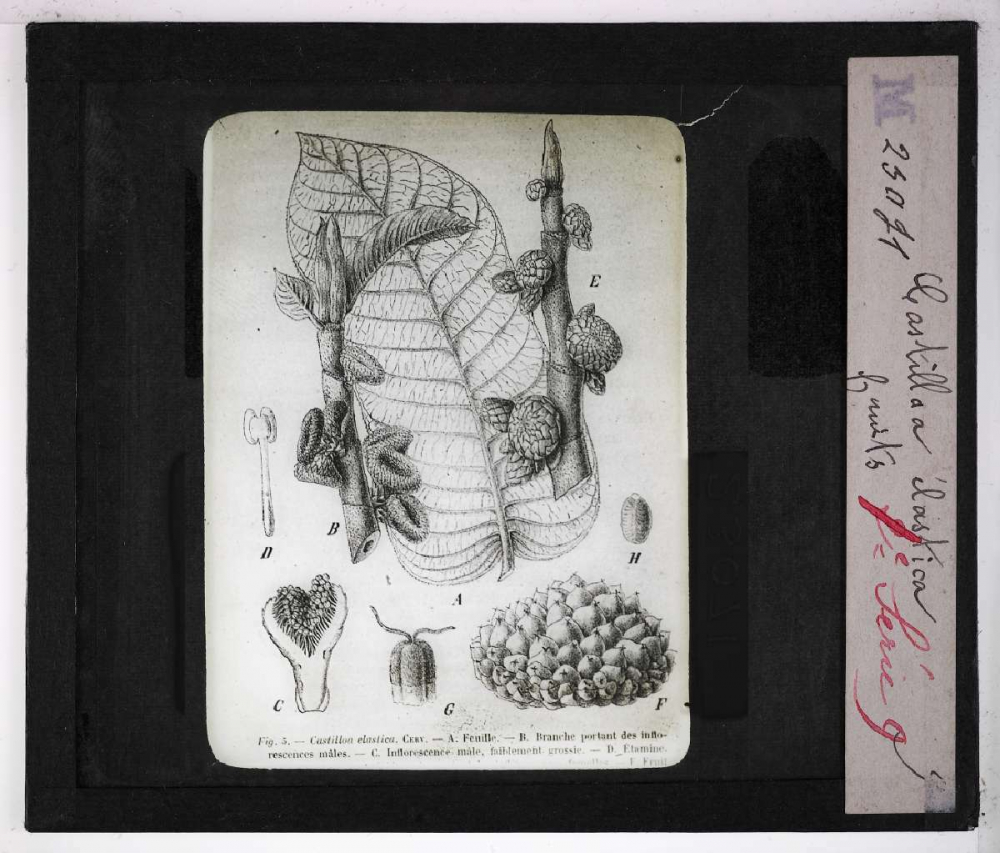 E
B
D
H
A
C
G
F
Fig. 5. — Castilloa elastica, CERV. — A. Feuille. — B. Branche portant des inflo-
rescences mâles. — C. Inflorescence mâle, faiblement grossie. — D. Étamine.
femelles — F. Fruit
M
Castilloa elastica
fruits
Série